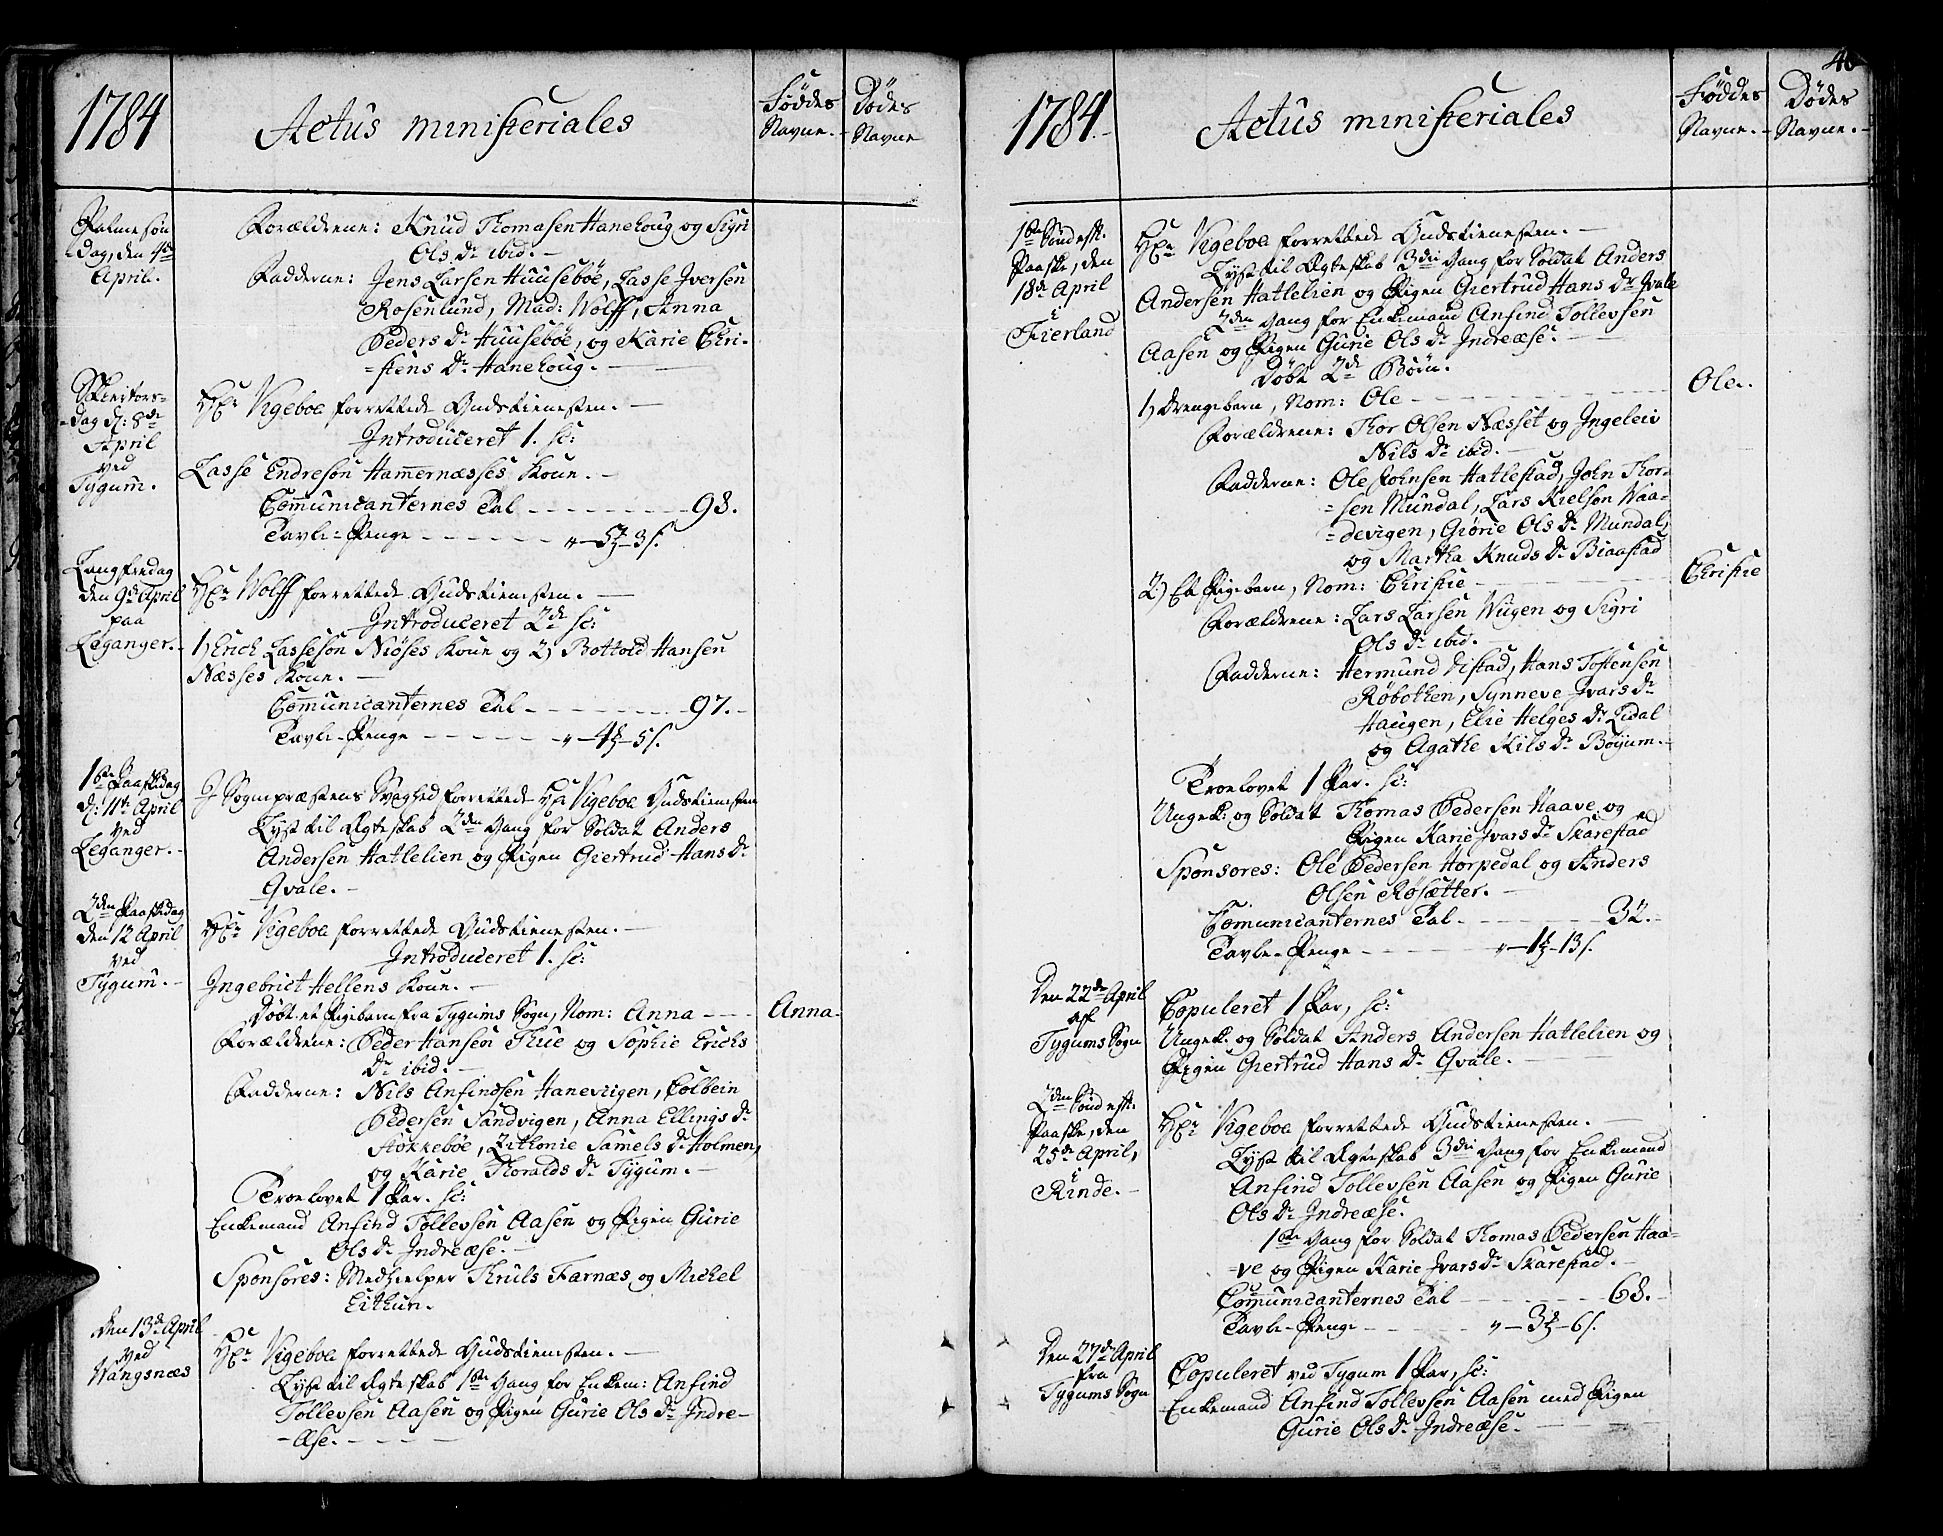 1784
Actus ministeriales
Föddes Navne.
Dödes Navne
Palmesön-
dag, den 4de
April.
Forældrene: Knud Thomasen Hanehoug og Sigri
Ols Dr ibid. -
Fadderne: Jens Larsen Huuseböe, Lasse Iversen
Rosenlund, Mad: Wolff, Anna
Peders Dr Huuseböe, og Karie Chri-
=stens Dr Hanehoug. -
Skiertors-
-dag d: 8de
April
ved
Tygum.
Hr Vigeboe forrettede Gudstienesten. -
Introduceret 1. sc:
Lasse Endresön Hamernæsses Kone. -
Comunicanternes Tal - - - 98.
Tavle-Penge - - - " - 5 - 3 s.
Langfredag
den 9de April
paa
Leganger. -
Hr Wolff forrettede Gudstienesten. -
Introduceret 2de sc:
1) Erich Lassesön Niöses Kone og 2) Bottold Hansen
Næsses Kone. -
Comunicanternes Tal - - - 97. -
Tavle-Penge - - - " - 4 - 5 s.
1ste Paaskedag
d: 11te April
ved
Leganger. -
I Sognepræstens Svaghed forrettede Hr Vigeboe Gudstienesten
Lyst til Ægteskab 2den Gang for Soldat Anders
Andersen Hatlelien og Pigen Giertrud Hans Dr
Qvale. -
2den Paaskedag
den 12 April
ved
Tygum. -
Hr Vigeboe forrettede Gudstienesten. -
Introduceret 1. sc:
Ingebrict Hellens Kone. -
Döbt et Pigebarn fra Tygums Sogn, Nom: Anna - - -
Anna -
Forældrene: Peder Hansen Thue og Sophie Erichs
Dr ibid. -
Fadderne: Nils Anfindsen Haneviigen, Colbein
Pedersen Sandvigen, Anna Ellings Dr
Stokkeböe, Zithonie Samels Dr Holmen,
og Karie Thoralds Dr Tygum. -
Troelovet 1 Par. sc:
Enkemand Anfind Tollevsen Aasen og Pigen Gurie
Ols Dr Indreæse. -
Sponsores: Medhielper Thruls Farnæs og Michel
Eithun.
den 13de April
ved
Wangsnæs
Hr Vigeboe forrettede Gudstienesten. -
Lyst til Ægteskab 1ste Gang for Enkem: Anfind
Tollevsen Aasen og Pigen Gurie Ols Dr Indre-
-æse. - - -
1784.
Actus ministeriales
Föddes Navne. -
Dödes Navne. -
40
1ste Sönd. eft.
Paaske, den
18de April
i
Fierland
Hr Vigeboe forrettede Gudstienesten. -
Lyst til Ægteskab 3die Gang for Soldat Anders
Andersen Hatlelien og Pigen Giertrud Hans Dr Qvale
2den Gang for Enkemand Anfind Tollevsen
Aasen og Pigen Gurie Ols Dr Indreæse. -
Döbt 2de Börn.
1) Drengebarn, Nom: Ole - - -
Ole.
Forældrene: Thor Olsen Næsset og Ingeleiv
Nils Dr ibid. -
Fadderne: Ole Johnsen Hatlestad, John Thor-
=sen Mundal, Lars Kielsen Waa-
=devigen, Giørie Ols Dr Mundal,
og Martha Knuds Dr Biaastad
2) Et Pigebarn, Nom: Christie - - -
Christie
Forældrene: Lars Larsen Wiigen og Sigri
Ols Dr ibid. -
Fadderne: Hermund Distad, Hans Tostensen
Röbothen, Synneve Ivars Dr
Haugen, Elie Helges Dr Lidal
og Agathe Nils Dr Böyum. -
Troelovet 1 Par. sc:
Ungek: og Soldat Thomas Pedersen Haave og
Pigen Karie Ivars Dr Skarestad
Sponsores: Ole Pedersen Horpedal og Anders
Olsen Rösætter. -
Comunicanternes Tal - - - 32. -
Tavle-Penge - - - " - 1 - 13 s.
Den 22de April
af
Tygums Sogn
Copuleret 1 Par, sc:
Ungek: og Soldat Anders Andersen Hatlelien og
Pigen Giertrud Hans Dr Qvale. -
2den Sönd. eft.
Paaske, den
25de April,
i
Rinde. -
Hr Vigeboe forrettede Gudstienesten. -
Lyst til Ægteskab 3die Gang for Enkemand
Anfind Tollevsen Aasen og Pigen Gurie
Ols Dr Indreæse.
1ste Gang for Soldat Thomas Pedersen Haa-
=ve og Pigen Karie Ivars Dr Skarestad. -
Comunicanternes Tal - - - 68. -
Tavle-Penge - - - " - 3 - 6 s.
Den 27de April
fra
Tygums Sogn
Copuleret ved Tygum 1 Par, sc:
Enkemand Anfind Tollevsen Aasen med Pigen
Gurie Ols Dr Indreæse. -